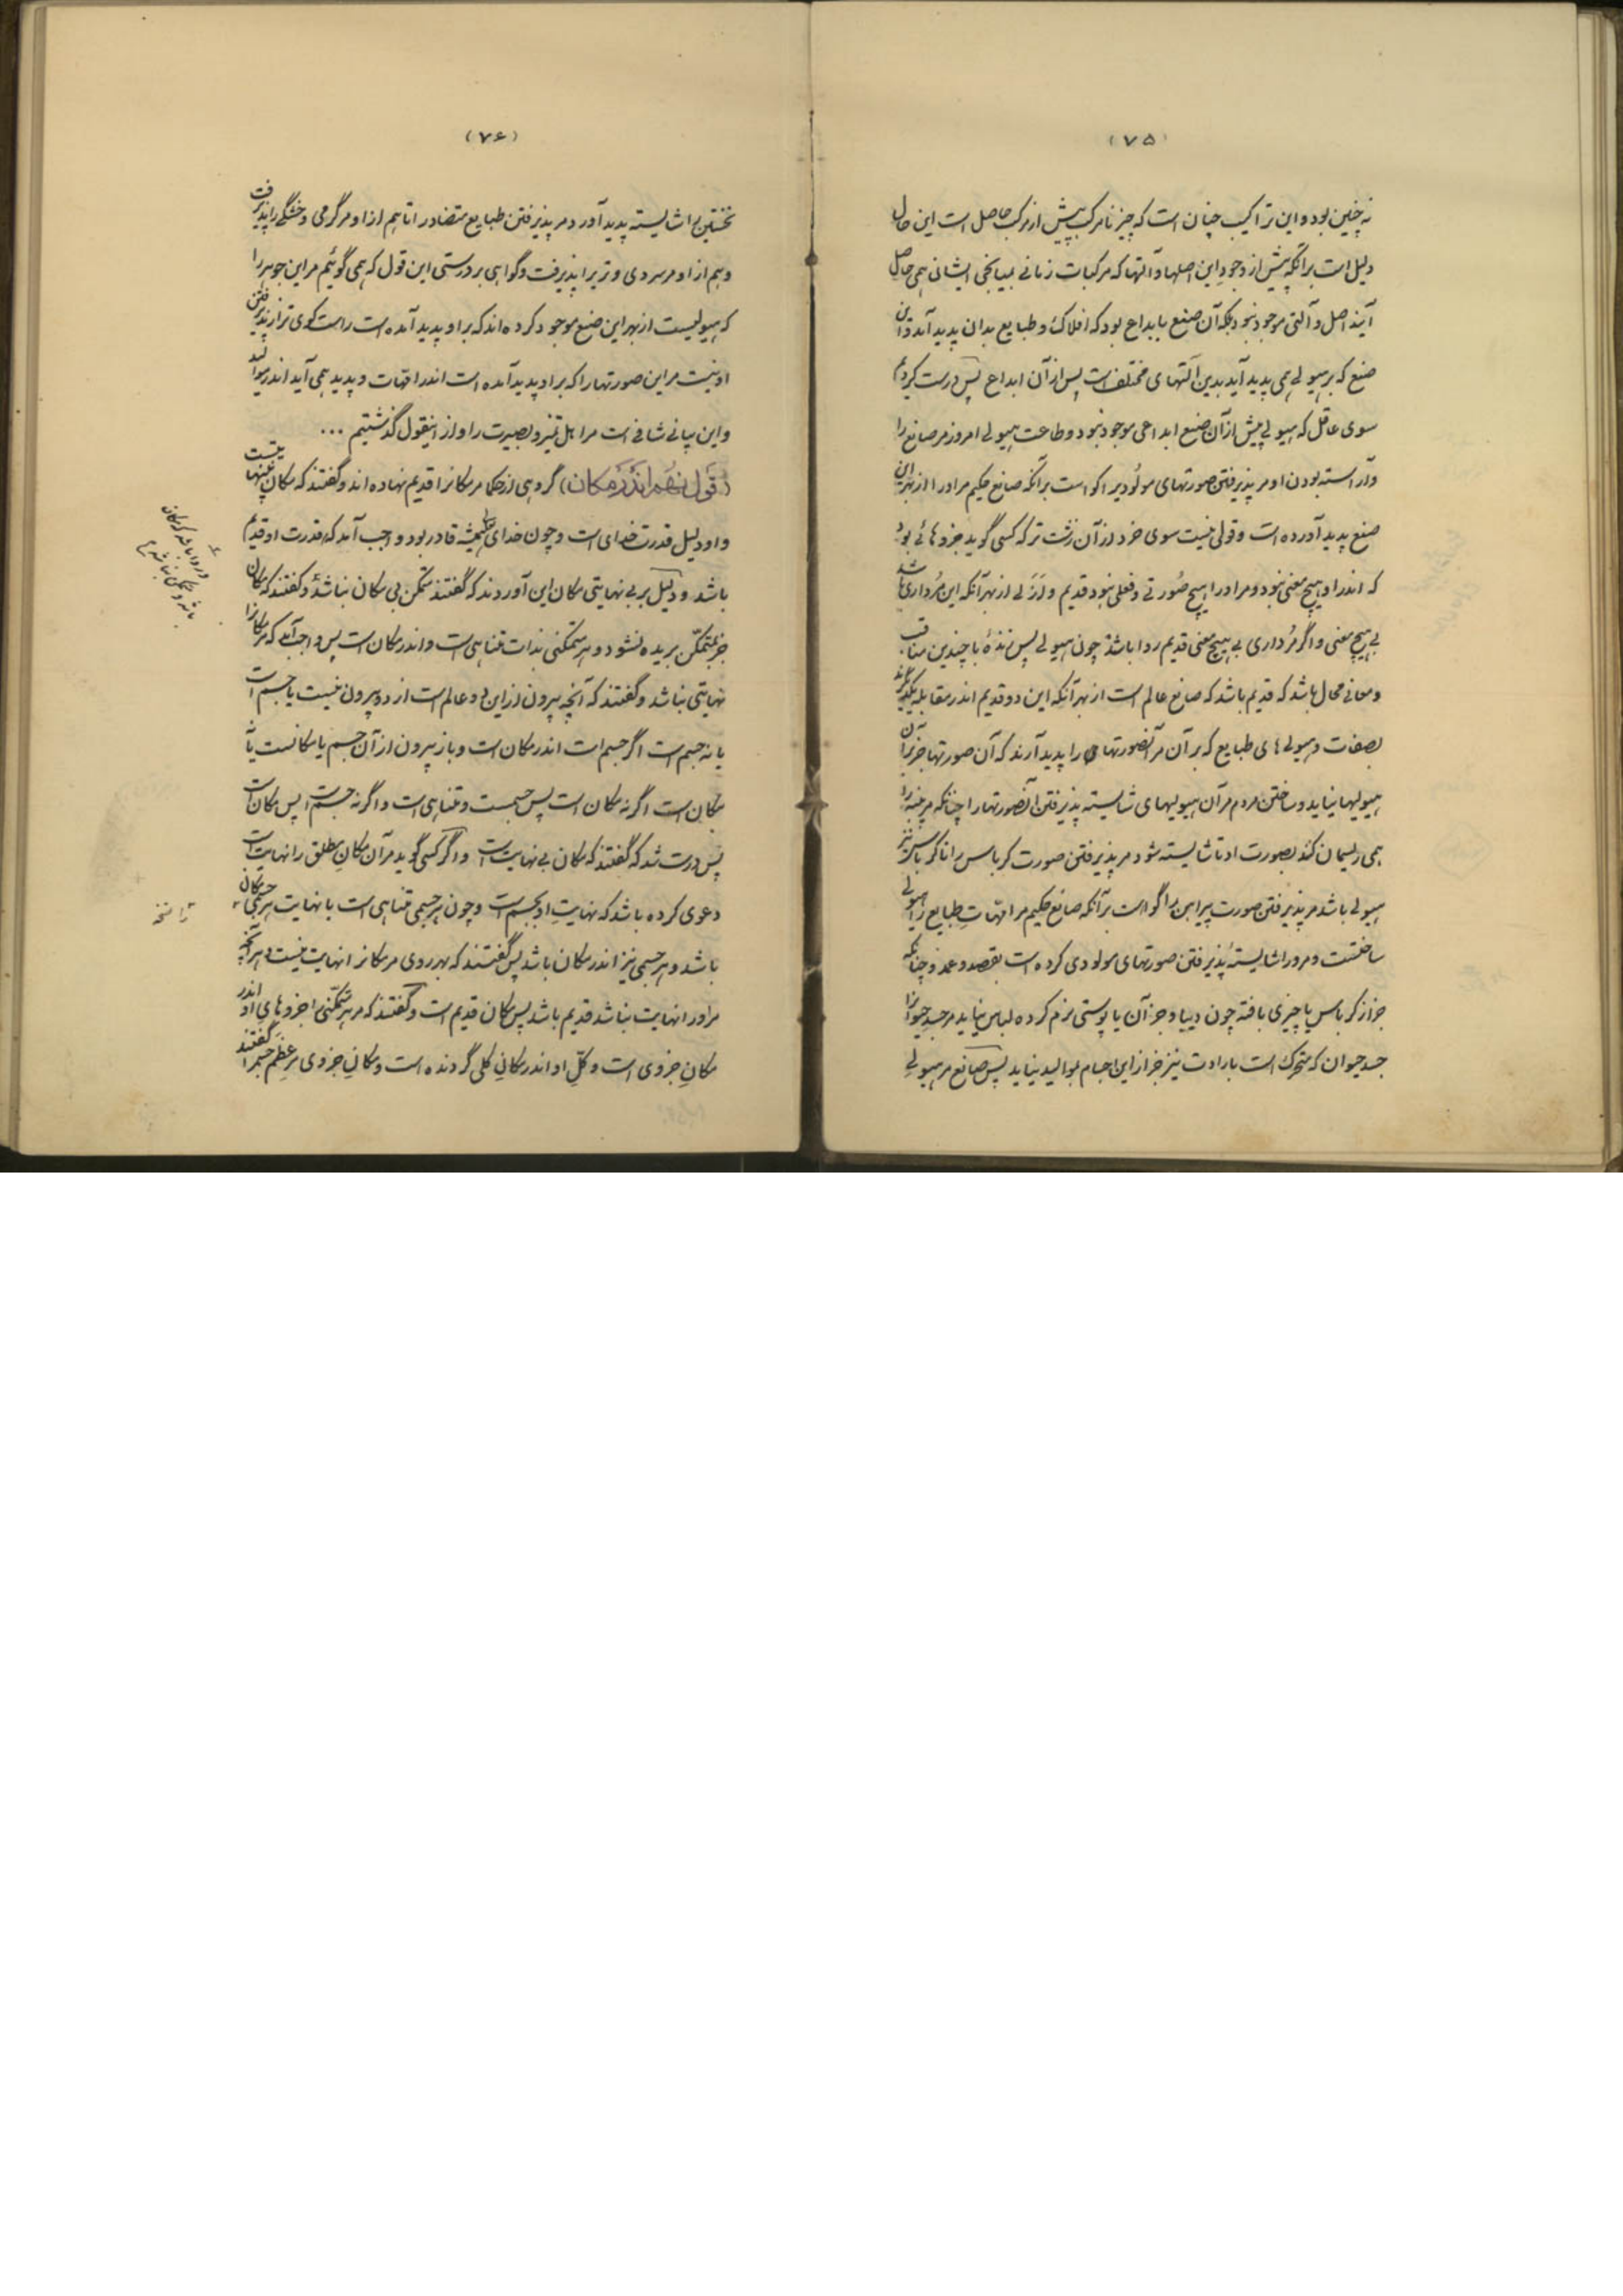 (۷۵)
نه چنین بود و این تراکیب چنان است که چیز نامرکب پیش از مرکب حاصل است این حال
دلیل است بر آنکه پیش از وجود این اصلها و آلتها که مرکبات زمانی بمیانجی ایشان همی حاصل
آیند اصل و آلتی موجود نبود بلکه آن صنع بابداع بود که افلاک و طبایع بدان پدید آمد و این
صنع که بر هیولی همی پدید آید بدین آلتهای مختلف است پس از آن ابداع پس درست کردیم
سوی عاقل که هیولی پیش از آن صنع ابداعی موجود نبود و طاعت هیولی امروز مر صانع را
و آراسته بودن او مر پذیرفتن صورتهای موالید را گواست بر آنکه صانع حکیم مر او را از بهر این
صنع پدید آورده است و قولی نیست سوی خرد از آن زشت تر که کسی گوید جزوهائی بود
که اندر او هیچ معنی نبود و مر او را هیچ صورتی و فعلی نبود قدیم و ازلی از بهر آنکه این مرداری باشد
بی هیچ معنی و اگر مرداری بی هیچ معنی قدیم روا باشد چون هیولی پس زندهٔ با چندین مناقب
و معانی محال باشد که قدیم باشد که صانع عالم است از بهر آنکه این دو قدیم اندر مقابله یکدیگرند
بصفات و هیولی های طبایع که بر آن مر آنصورتهای را پدید آرند که آن صورتها جز بر آن
هیولیها نیاید و ساختن مردم مر آن هیولیهای شایسته پذیرفتن آنصورتها را چنانکه مر پنبه را
همی ریسمان کند بصورت او تا شایسته شود مر پذیرفتن صورت کرباس را تا کرباس نیز
هیولی باشد مر پذیرفتن صورت پیراهن را گواست بر آنکه صانع حکیم مر امهات طبایع را هیولی
ساختست و مر او را شایستهٔ پذیرفتن صورتهای مولودی کرده است بقصد و عمد و چنانکه
جز از کرباس یا چیزی بافته چون دیبا و جز آن یا پوستی نرم کرده لباس نیاید مر جسد حیوانرا
جسد حیوان که متحرک است بارادت نیز جز از این اجسام موالید نیاید پس صانع مر هیولی
(۷۶)
نخستین را شایسته پدید آورد مر پذیرفتن طبایع متضاد را تا هم از او مر گرمی و خشکی را پذیرفت
و هم از او مر سردی و تری را پذیرفت و گواهی بر درستی این قول که همی گوئیم مر این جوهر را
که هیولیست از بهر این صنع موجود کرده اند که بر او پدید آمده است راست گوی تر از پذیرفتن
او نیست مر این صورتها را که بر او پدید آمده است اندر امهات و پدید همی آید اندر موالید
و این بیانی شافی است مر اهل تمیز و بصیرت را و از اینقول گذشتیم ...
(قول نهم اندر مکان) گروهی از حکما مر مکانرا قدیم نهاده اند و گفتند که مکان بی‌نهایتست
و او دلیل قدرت خدای است و چون خدای همیشه قادر بود واجب آمد که قدرت او قدیم
باشد و دلیل بر بی نهایتی مکان این آوردند که گفتند متمکن بی مکان نباشد و گفتند که مکان
جز بمتمکّن بریده نشود و هر متمکنی بذات متناهی است و اندر مکان است پس واجب آمد که مر مکانرا
نهایتی نباشد و گفتند که آنچه بیرون از این دو عالم است از دو بیرون نیست یا جسم است
یا نه جسم است اگر جسم است اندر مکان است و باز بیرون از آن جسم یا مکانست یا نه
مکان است اگر نه مکان است پس جسمست و متناهی است و اگر نه جسم است پس مکان است
پس درست شد که گفتند که مکان بی نهایت است و اگر کسی گوید مر آن مکان مطلق را نهایت است
دعوی کرده باشد که نهایت او بجسم است و چون هر جسمی متناهی است با نهایت هر جسمی مکان
باشد و هر جسمی نیز اندر مکان باشد پس گفتند که بهر روی مر مکانرا نهایت نیست و هر آنچه
مر او را نهایت نباشد قدیم باشد پس مکان قدیم است و گفتند که مر هر متمکّنی را جزوهای او اندر
مکان جزوی است و کلّ او اندر مکان کلی گردنده است و مکان جزوی مر عظم جسم را گفتند
و روا باشد که مکان
باشد و متمکن نباشد